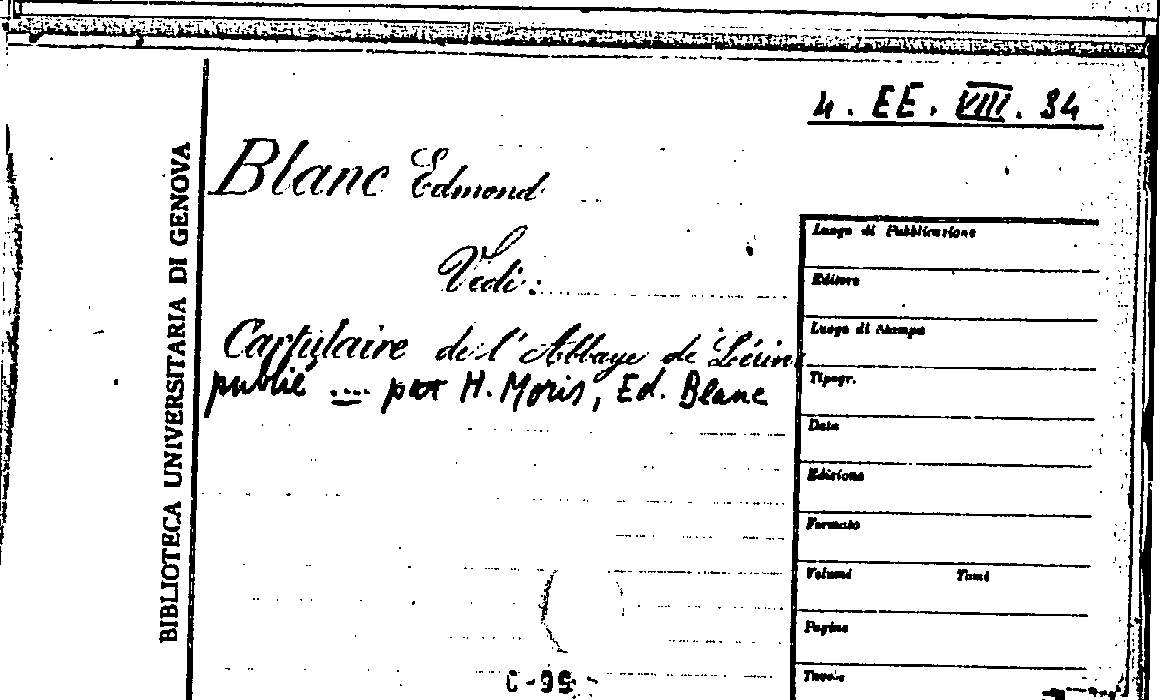 4. EE. VIII. 34
BIBLIOTECA UNIVERSITARIA DI GENOVA
Blanc Edmond
Vedi:
Cartulaire de l'Abbaye de Lérins
publié ... par H. Moris, Ed. Blanc
Luogo di Pubblicazione
Editore
Luogo di Stampa
Tipogr.
Data
Edizione
Formato
Volumi Tomi
Pagine
Tavole
C-99